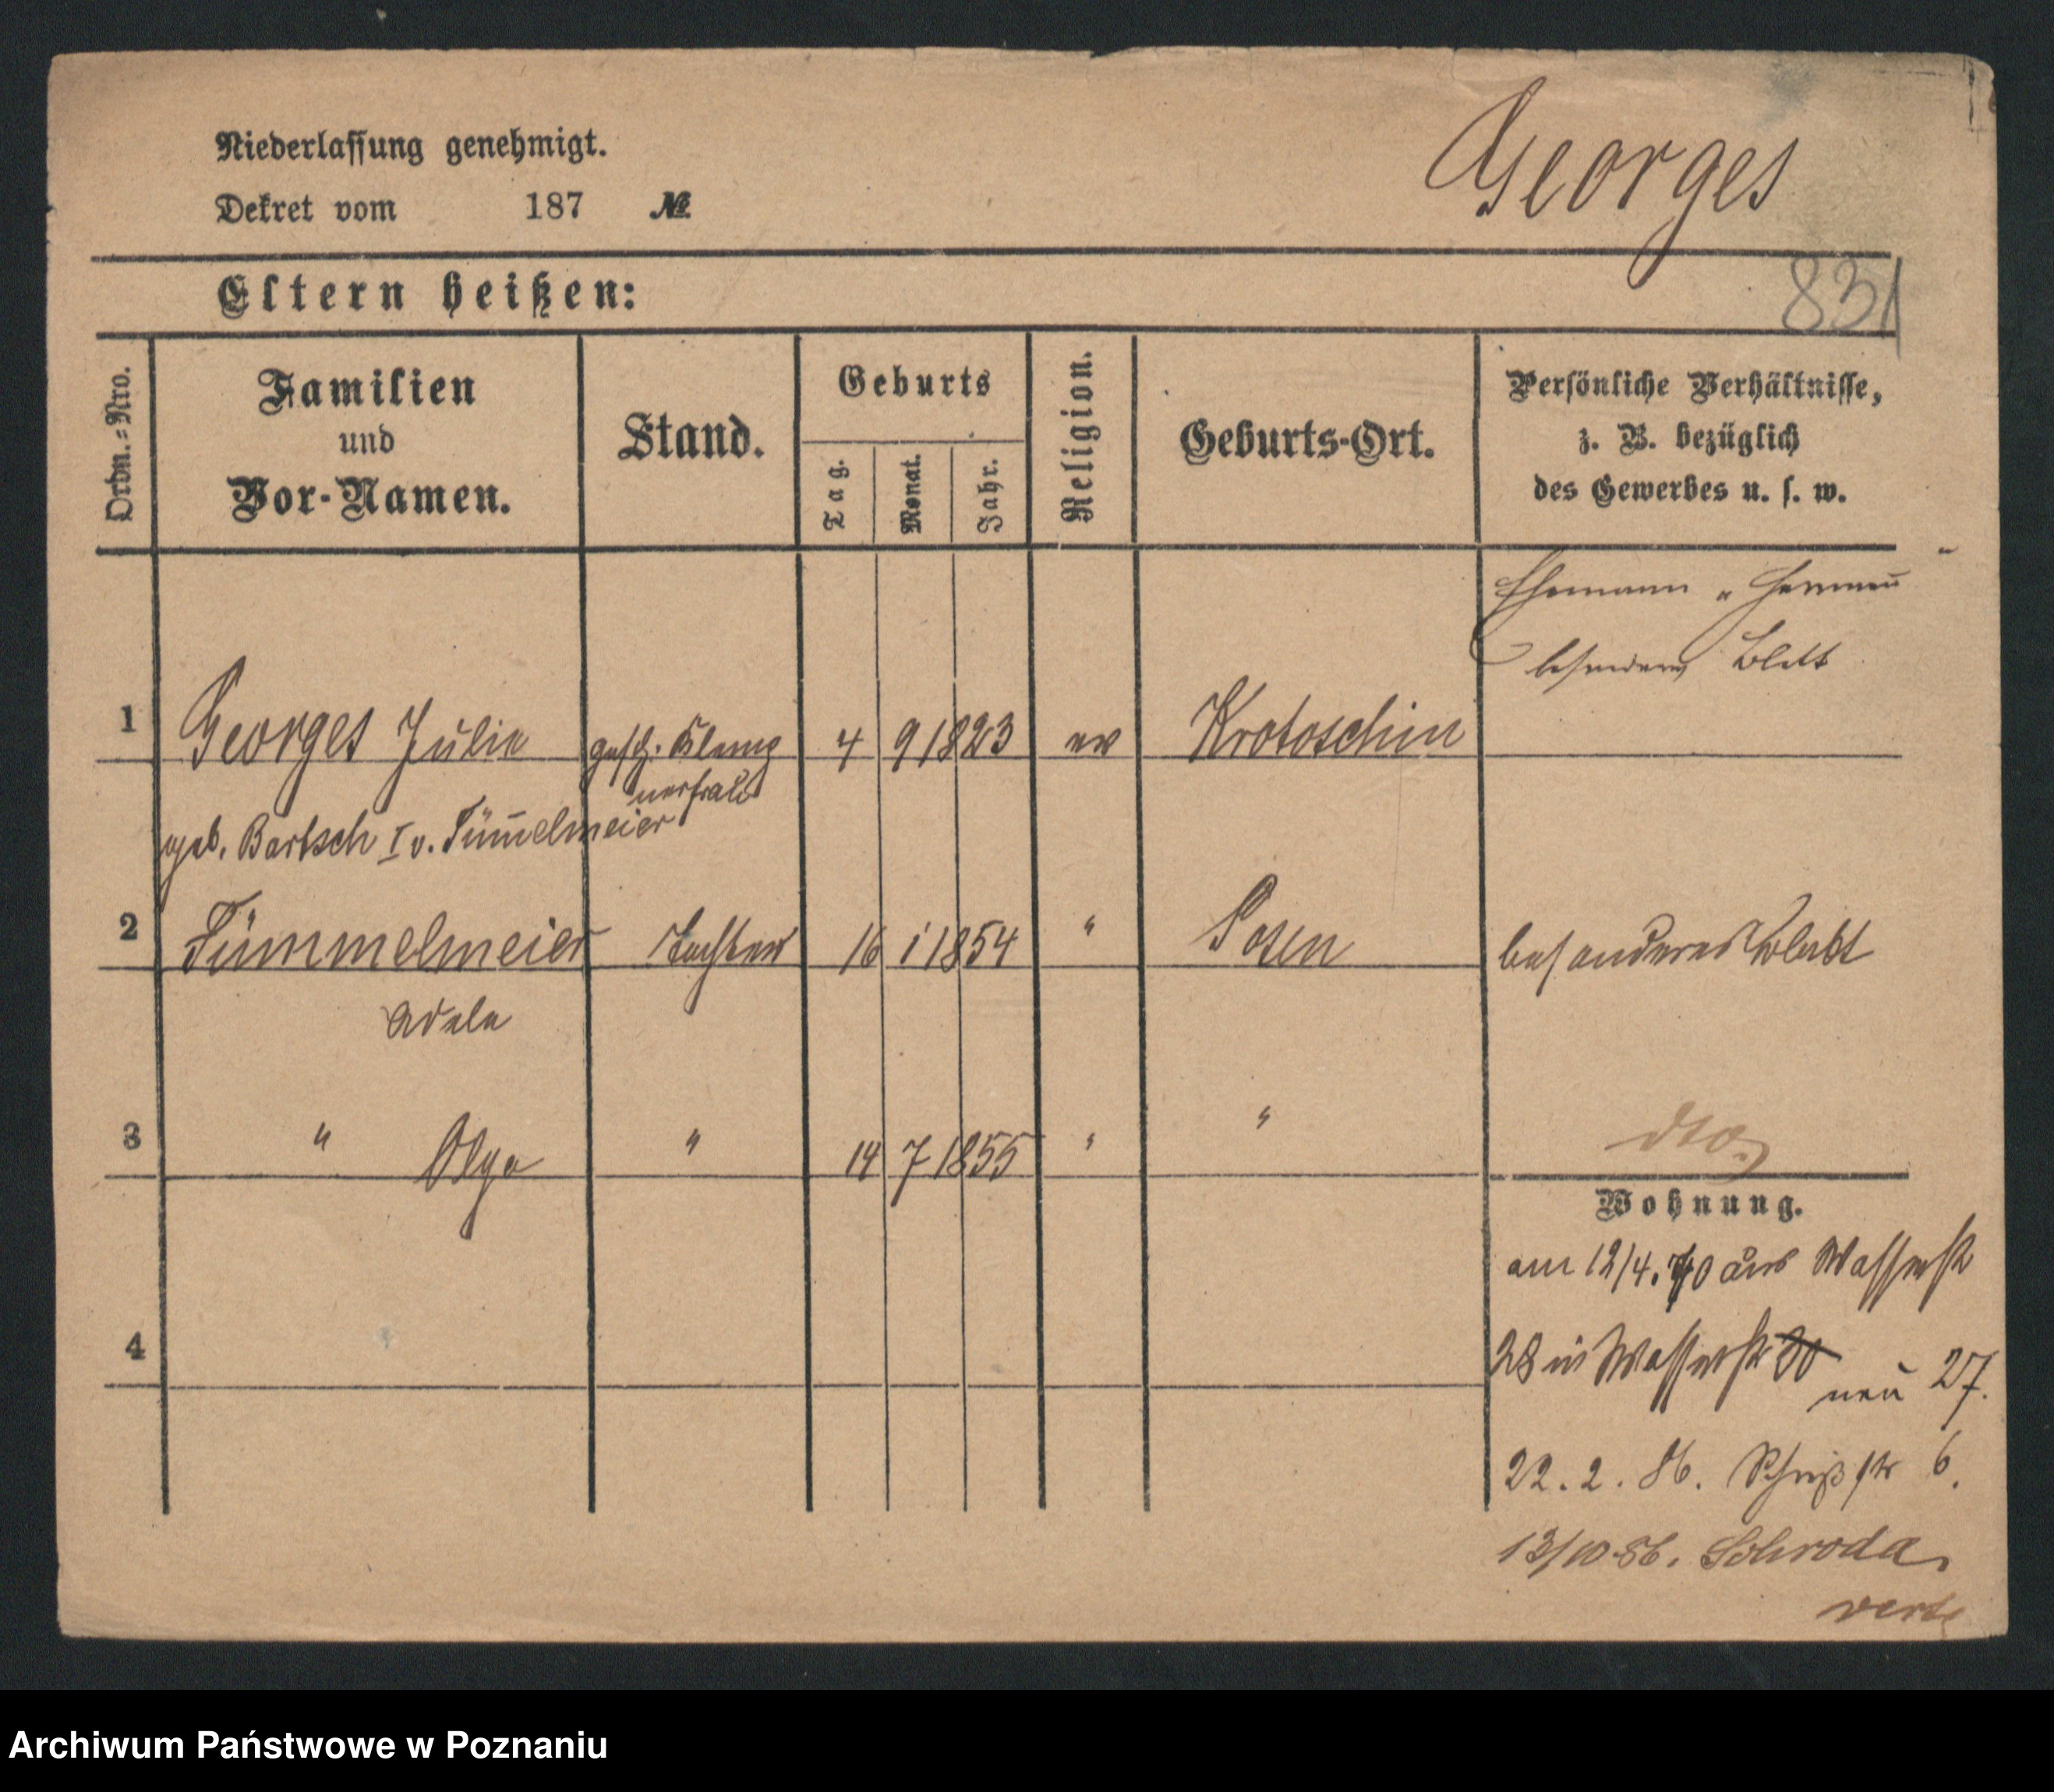 Niederlassung genehmigt.
Dekret vom 187 №
Georges
831
Eltern heißen:
Ordn.=Nro.
Familien
und
Vor-Namen.
Stand.
Geburts
Tag.
Monat.
Jahr.
Religion.
Geburts-Ort.
Persönliche Verhältnisse,
z. B. bezüglich
des Gewerbes u. s. w.
Ehemann
besonderes Blatt
1 Georges Julie gesch. Klemp 4 9 1823 ev Krotoschin
nerfrau
geb. Bartsch I v. Tümelmeier
2 Tümmelmeier Tochter 16 1 1854 " Posen besonderes Blatt
Adele
3 " Olga " 14 7 1855 " " dto.
Wohnung.
am 12/4. 70 aus Wasserstr
28 in Wasserstr 30 neu 27.
4
22. 2. 86. 6.
13/10 86. Schroda.
verte
Archiwum Państwowe w Poznaniu